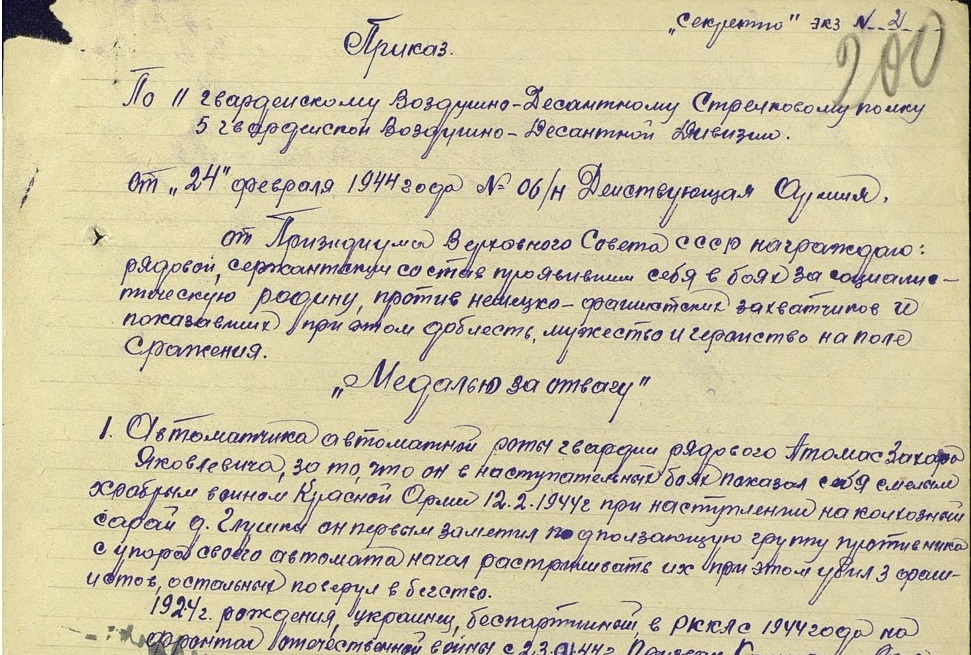 „Секретно" экз № 2
200
Приказ.
По 11 гвардейскому Воздушно-Десантному Стрелковому полку
5 гвардейской Воздушно-Десантной Дивизии.
от „24" февраля 1944 года № 06/н Действующая Армия.
от Призидиума Верховного Совета СССР награждаю:
рядовой, сержантский состав проявившим себя в боях за социалис-
тическую родину, против немецко-фашистских захватчиков и
показавших при этом доблесть, мужество и геройство на поле
сражения.
„Медалью за отвагу"
1. Автоматчика автоматной роты гвардии рядового Атомас Захара
Яковлевича, за то, что он в наступательных боях показал себя смелым
храбрым воином Красной Орми 12.2.1944г при наступлении на колхозный
сарай д. Глушки он первым заметил подползающую группу противника
с упора своего автомата начал растришвать их при этом убил 3 фаш-
истов, остальных повернул в бегство.
1924г. рождения, украинец, беспартийный, в РККА с 1944 года на
фронтах отечественной войны с 2.3.1944г. Призван